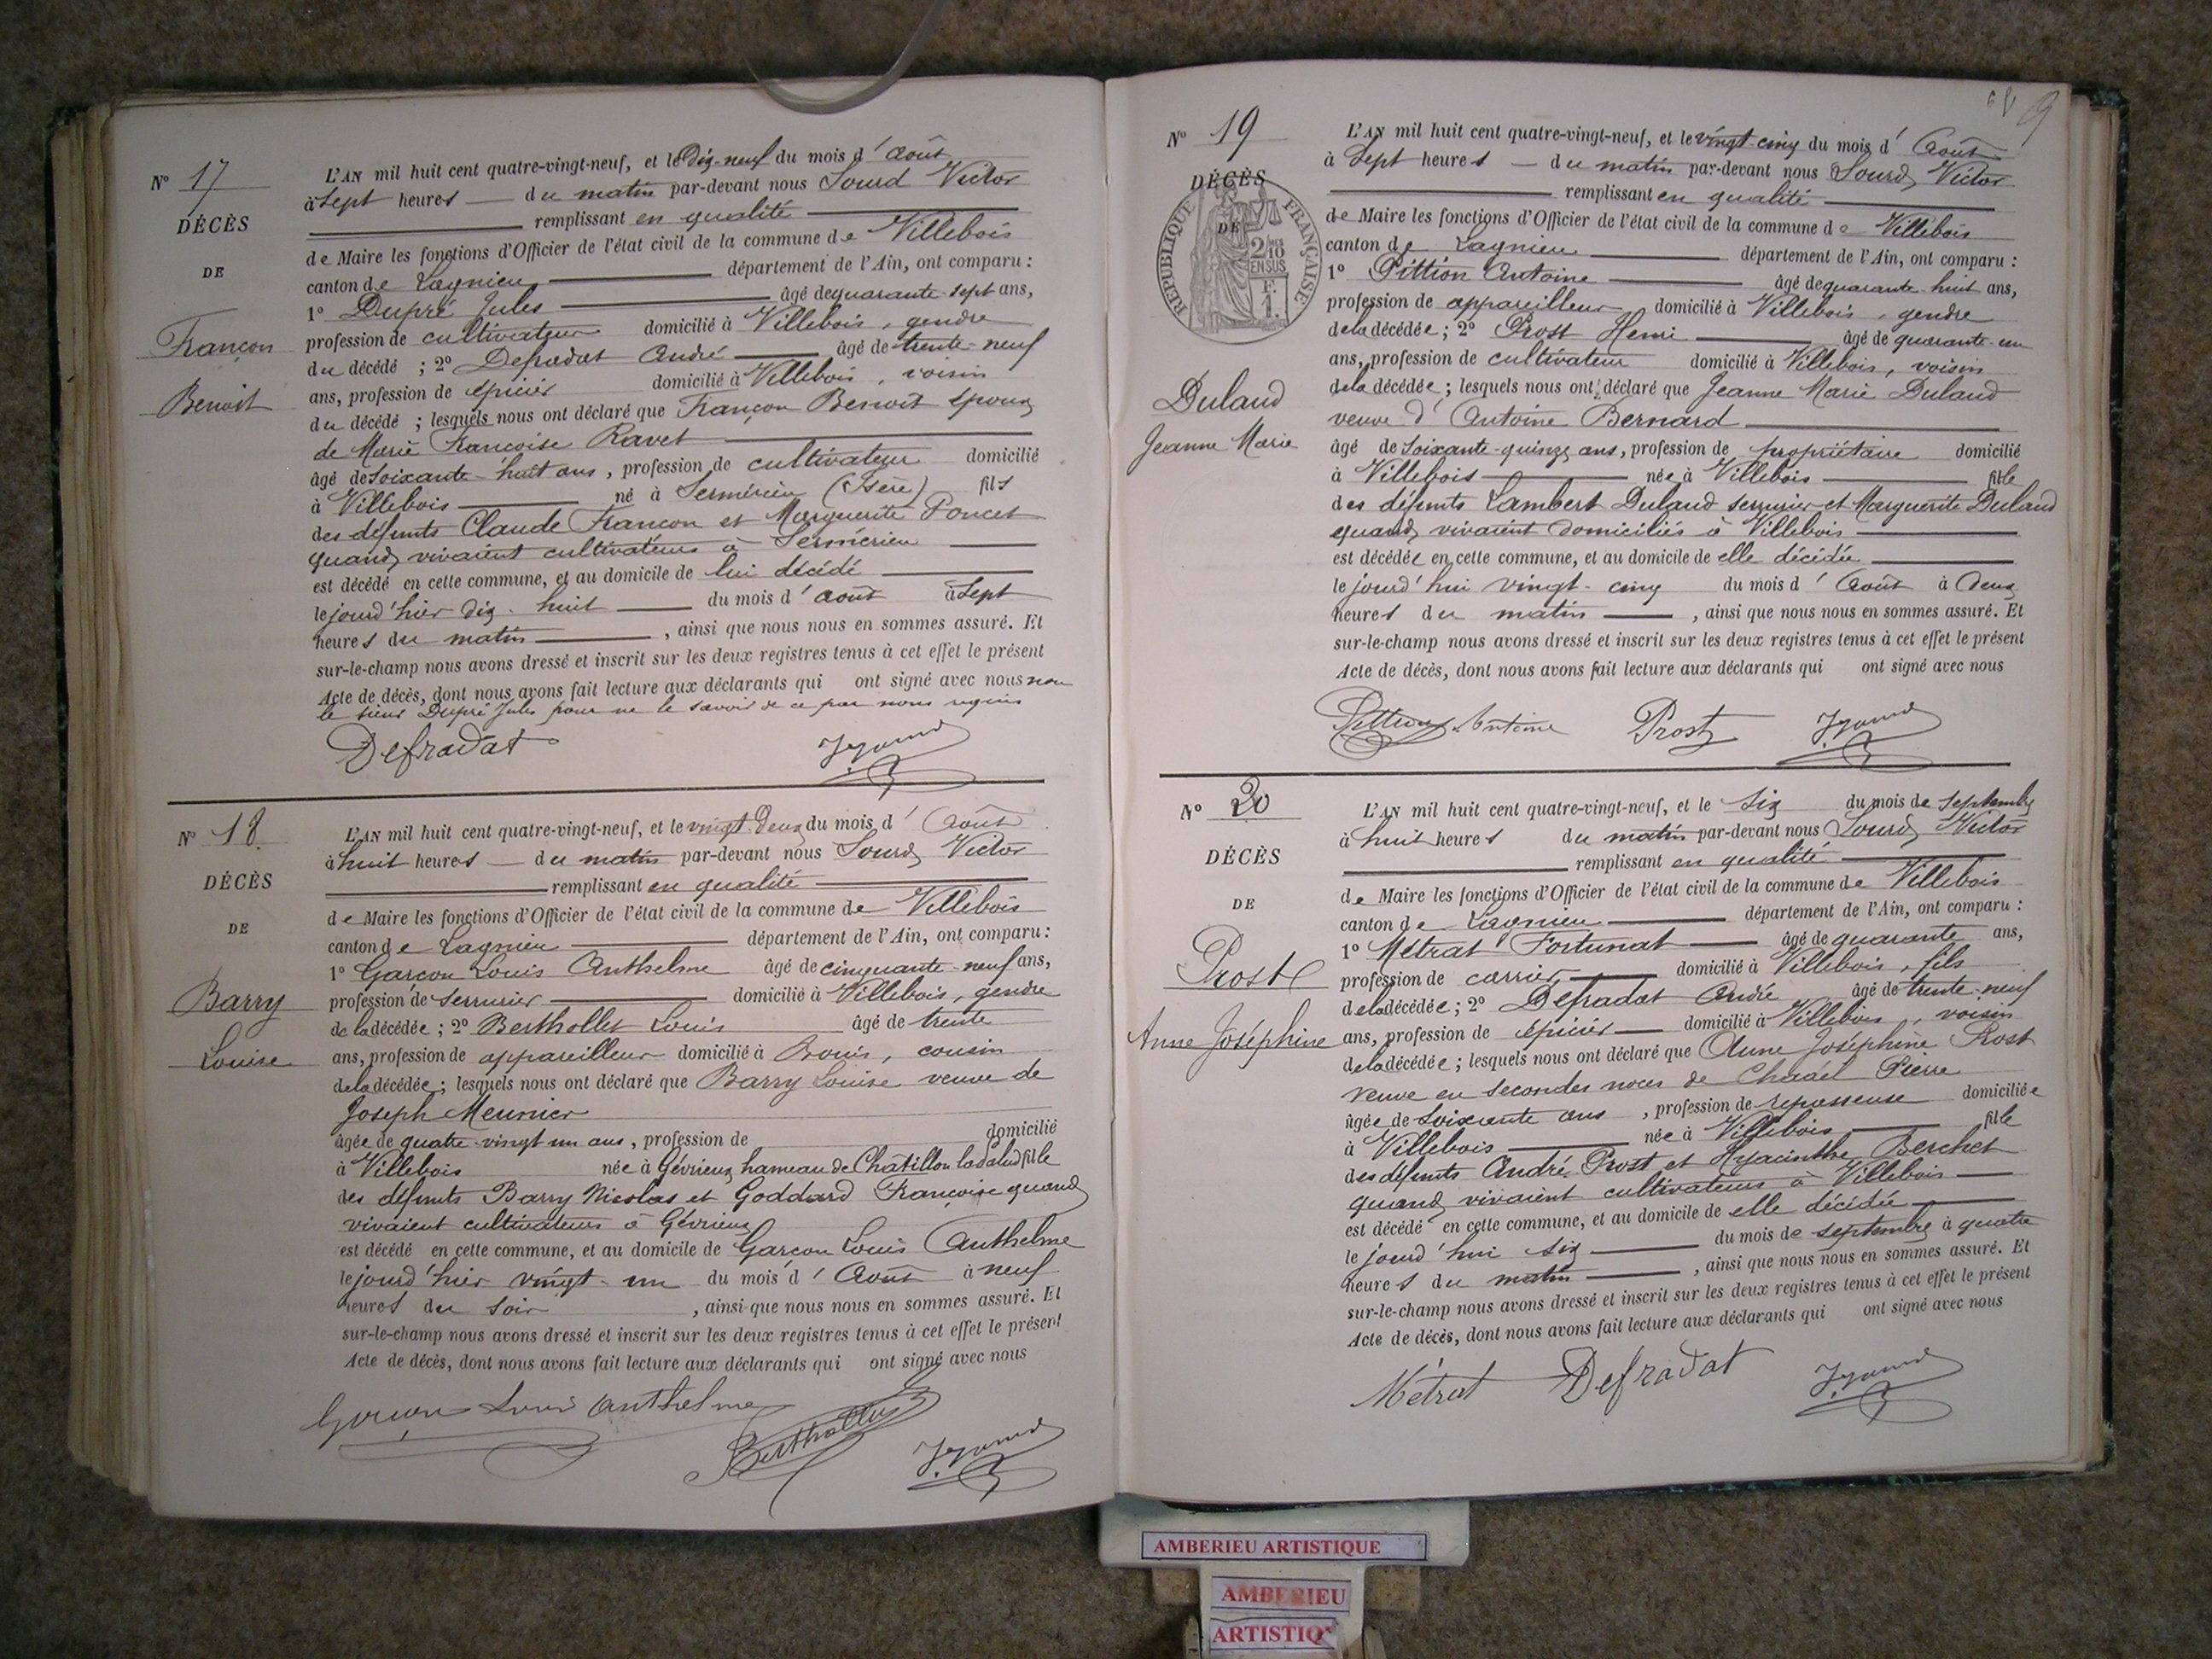 N° 17
DÉCÈS
DE
Françon
Benoit
L'AN mil huit cent quatre-vingt-neuf, et le Dix-neuf du mois d'août
à Sept heures du matin par-devant nous Sourd Victor
remplissant en qualité
de Maire les fonctions d'Officier de l'état civil de la commune de Villebois
canton de Lagnieu département de l'Ain, ont comparu :
1° Dupré Jules âgé de quarante-sept ans,
profession de cultivateur domicilié à Villebois, gendre
du décédé ; 2° Defradat André âgé de trente-neuf
ans, profession de épicier domicilié à Villebois, voisin
du décédé ; lesquels nous ont déclaré que Françon Benoit époux
de Marie Françoise Ravet
âgé de Soixante-huit ans, profession de cultivateur domicilié
à Villebois né à Sermérieu (Isère) fils
des défunts Claude Françon et Marguerite Poncet
quand vivaient cultivateurs à Sermérieu
est décédé en cette commune, et au domicile de lui décédé
le jourd'hier dix-huit du mois d'août à Sept
heures du matin, ainsi que nous nous en sommes assuré. Et
sur-le-champ nous avons dressé et inscrit sur les deux registres tenus à cet effet le présent
Acte de décès, dont nous avons fait lecture aux déclarants qui ont signé avec nous non
le sieur Dupré Jules pour ne le savoir de ce par nous requis
Defradat
N° 18
DÉCÈS
DE
Barry
Louise
L'AN mil huit cent quatre-vingt-neuf, et le vingt-deux du mois d'Août
à huit heures du matin par-devant nous Sourd Victor
remplissant en qualité
de Maire les fonctions d'Officier de l'état civil de la commune de Villebois
canton de Lagnieu département de l'Ain, ont comparu :
1° Garçon Louis Anthelme âgé de cinquante-neuf ans,
profession de serrurier domicilié à Villebois, gendre
de la décédée ; 2° Berthollet Louis âgé de trente
ans, profession de appareilleur domicilié à Bouis, cousin
de la décédée ; lesquels nous ont déclaré que Barry Louise veuve de
Joseph Meunier
âgée de quatre-vingt un ans, profession de domicilié
à Villebois née à Gévrieux hameau de Châtillon la Palud fille
des défunts Barry Nicolas et Goddard Françoise quand
vivaient cultivateurs à Gévrieux
est décédé en cette commune, et au domicile de Garçon Louis Anthelme
le jourd'hier vingt-un du mois d'Août à neuf
heures du soir, ainsi que nous nous en sommes assuré. Et
sur-le-champ nous avons dressé et inscrit sur les deux registres tenus à cet effet le présent
Acte de décès, dont nous avons fait lecture aux déclarants qui ont signé avec nous
Garçon Louis Anthelme
Berthollet
N° 19
DÉCÈS
DE
RÉPUBLIQUE FRANÇAISE
2/10 EN SUS
F. 1.
Duland
Jeanne Marie
L'AN mil huit cent quatre-vingt-neuf, et le vingt-cinq du mois d'Août
à Sept heures du matin par-devant nous Sourd Victor
remplissant en qualité
de Maire les fonctions d'Officier de l'état civil de la commune de Villebois
canton de Lagnieu département de l'Ain, ont comparu :
1° Pittion Antoine âgé de quarante-huit ans,
profession de appareilleur domicilié à Villebois, gendre
de la décédée ; 2° Prost Henri âgé de quarante-un
ans, profession de cultivateur domicilié à Villebois, voisin
de la décédée ; lesquels nous ont déclaré que Jeanne Marie Duland
veuve d'Antoine Bernard
âgé de Soixante-quinze ans, profession de propriétaire domicilié
à Villebois née à Villebois fille
des défunts Lambert Duland serrurier et Marguerite Duland
quand vivaient domiciliés à Villebois
est décédée en cette commune, et au domicile de elle décédée
le jourd'hui vingt-cinq du mois d'Août à Deux
heures du matin, ainsi que nous nous en sommes assuré. Et
sur-le-champ nous avons dressé et inscrit sur les deux registres tenus à cet effet le présent
Acte de décès, dont nous avons fait lecture aux déclarants qui ont signé avec nous
Pittion Antoine Prost
N° 20
DÉCÈS
DE
Prost
Anne Joséphine
L'AN mil huit cent quatre-vingt-neuf, et le Six du mois de Septembre
à huit heures du matin par-devant nous Sourd Victor
remplissant en qualité
de Maire les fonctions d'Officier de l'état civil de la commune de Villebois
canton de Lagnieu département de l'Ain, ont comparu :
1° Métrat Fortunat âgé de quarante ans,
profession de carrier domicilié à Villebois, fils
de la décédée ; 2° Defradat André âgé de trente-neuf
ans, profession de épicier domicilié à Villebois, voisin
de la décédée ; lesquels nous ont déclaré que Anne Joséphine Prost
veuve en secondes noces de Chadel Pierre
âgée de Soixante ans, profession de repasseuse domiciliée
à Villebois née à Villebois fille
des défunts André Prost et Hyacinthe Berchet
quand vivaient cultivateurs à Villebois
est décédé en cette commune, et au domicile de elle décédée
le jourd'hui six du mois de septembre à quatre
heures du matin, ainsi que nous nous en sommes assuré. Et
sur-le-champ nous avons dressé et inscrit sur les deux registres tenus à cet effet le présent
Acte de décès, dont nous avons fait lecture aux déclarants qui ont signé avec nous
Métrat Defradat
AMBERIEU ARTISTIQUE
AMBERIEU
ARTISTIQ